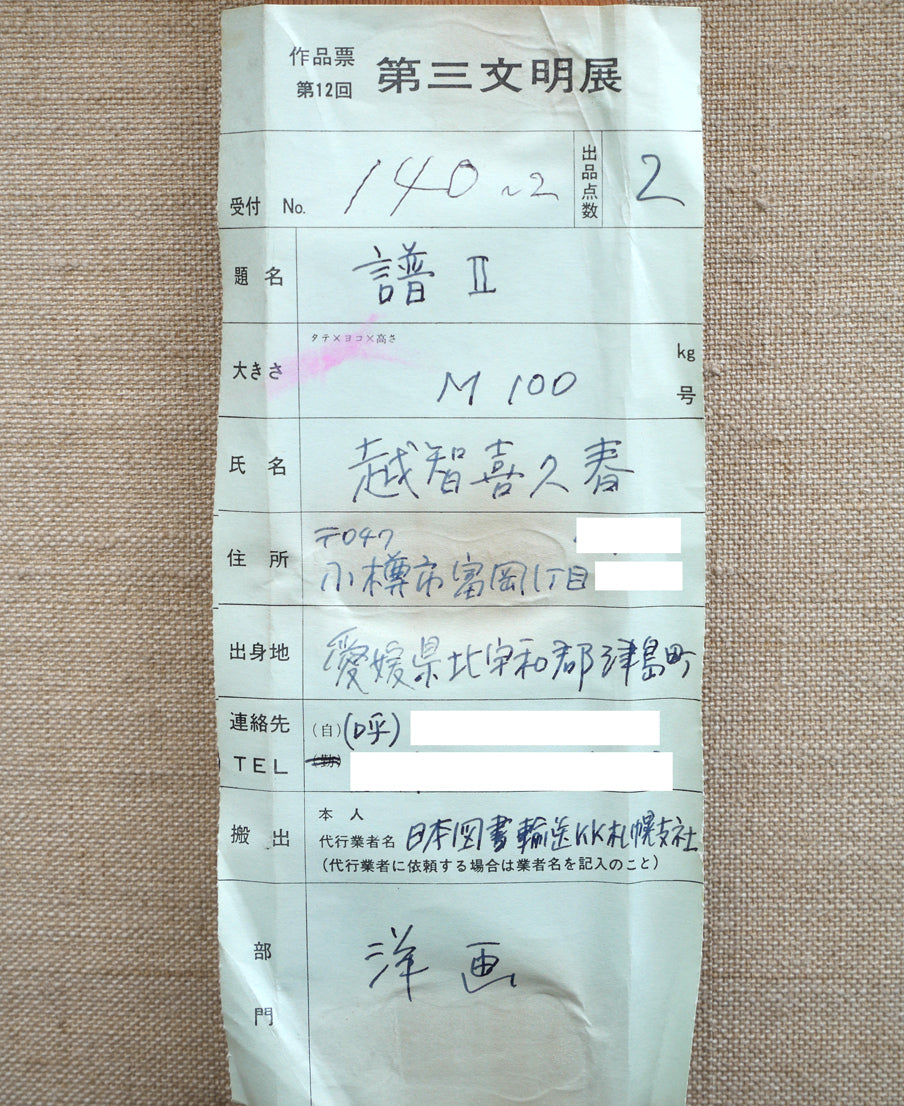 作品票
第12回 第三文明展
受付 No. 140~2 出品点数 2
題名 譜 Ⅱ
大きさ タテ×ヨコ×高さ M 100 kg 号
氏名 越智喜久春
住所 〒047
小樽市富岡1丁目
出身地 愛媛県北宇和郡津島町
連絡先 (自)(呼)
TEL (勤)
搬出 本人
代行業者名 日本図書輸送KK札幌支社
(代行業者に依頼する場合は業者名を記入のこと)
部門 洋画